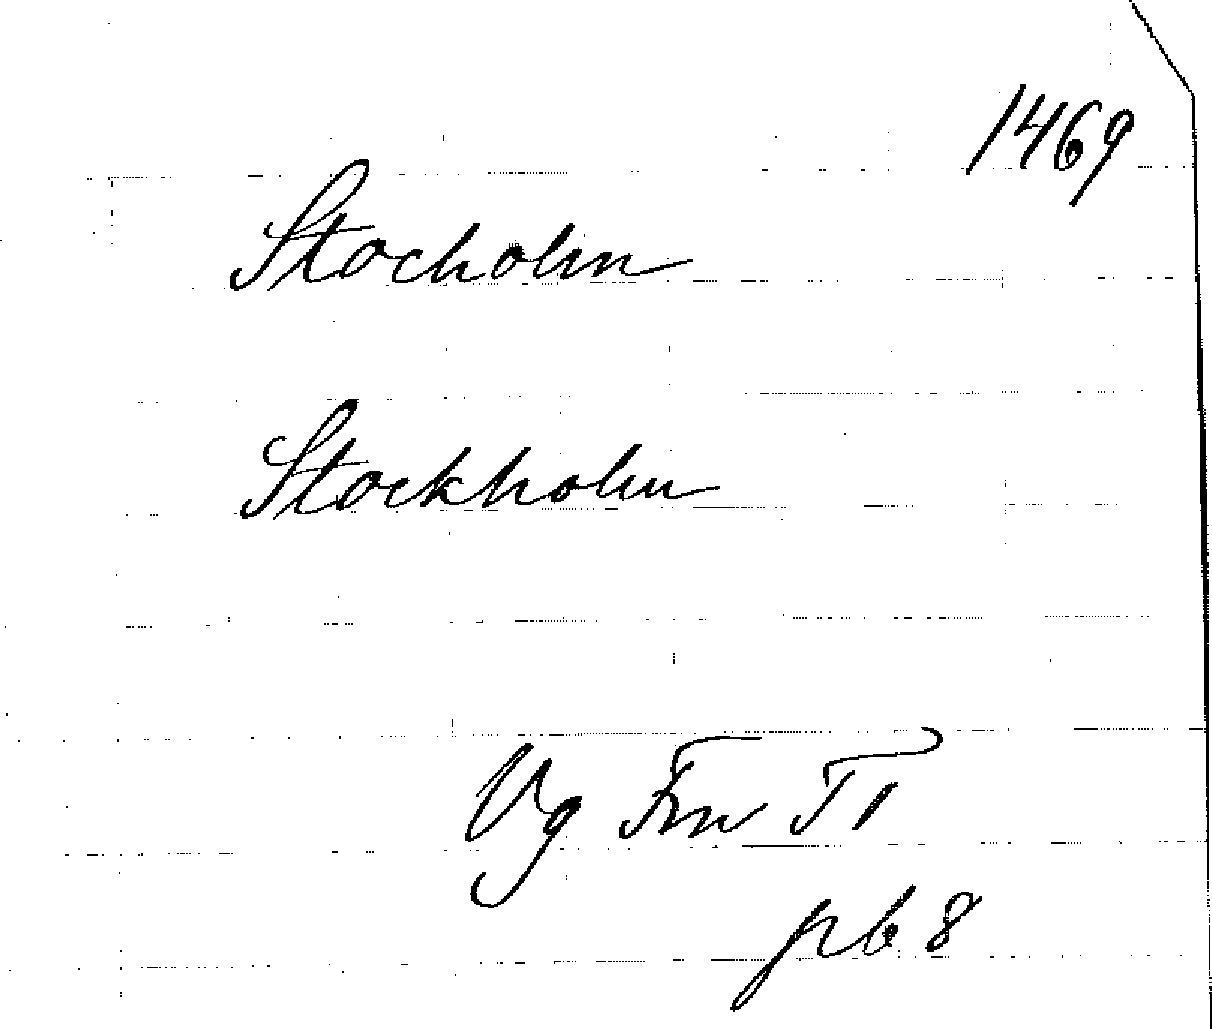 1469
Stocholm
Stockholm
Vg Fm T1
pb 8